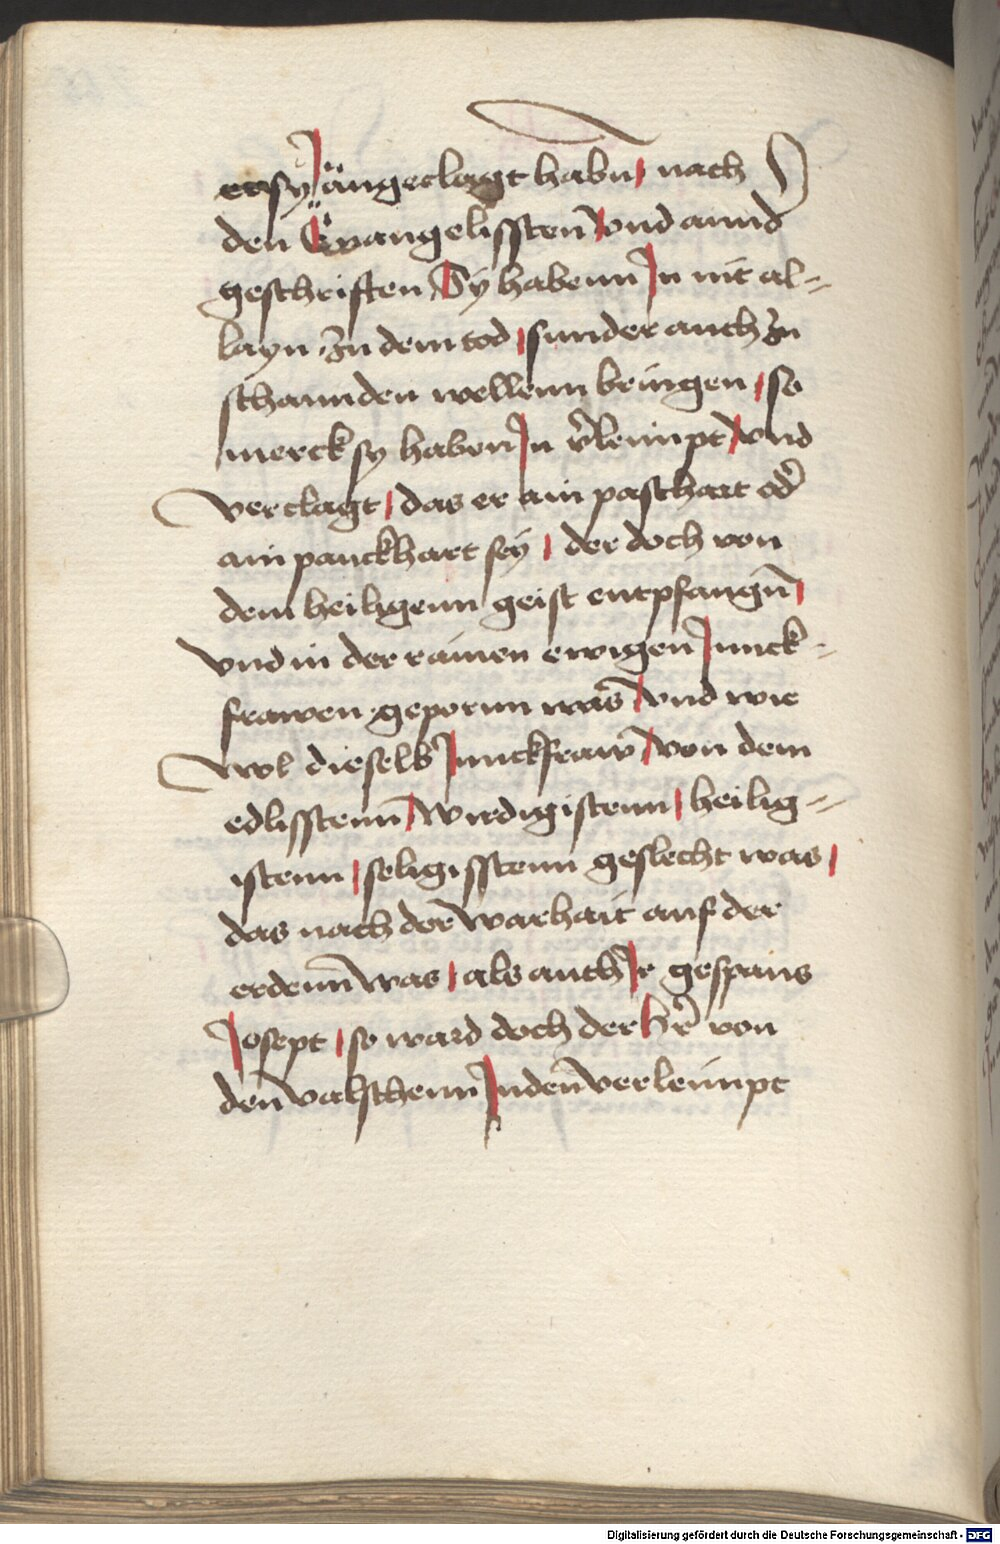 er sy angeclagt habn nach
den Ewangelissten vnd annd
geschriften Sy habenn In nit al-
layn zu dem tod sunder auch zu
schannden wellenn bringen so
merck sy haben In v̓leimpt vnd
verclagt das er ain paschart od̓
ain panckhart seÿ der doch von
dem heiligenn geist entpfangn̄
vnd in der rainen ewigen Junck-
frawen gepornn was vnd wie
wol dieselb Junckfraw von dem
edlisstenn wirdigistenn heilig-
istenn seligisstenn geslecht was
das nach der warhait auf der
erdenn was als auch Ir gespans
Josept so ward doch der Hr̄ von
den valschenn Juden verleimpt
Digitalisierung gefördert durch die Deutsche Forschungsgemeinschaft - DFG